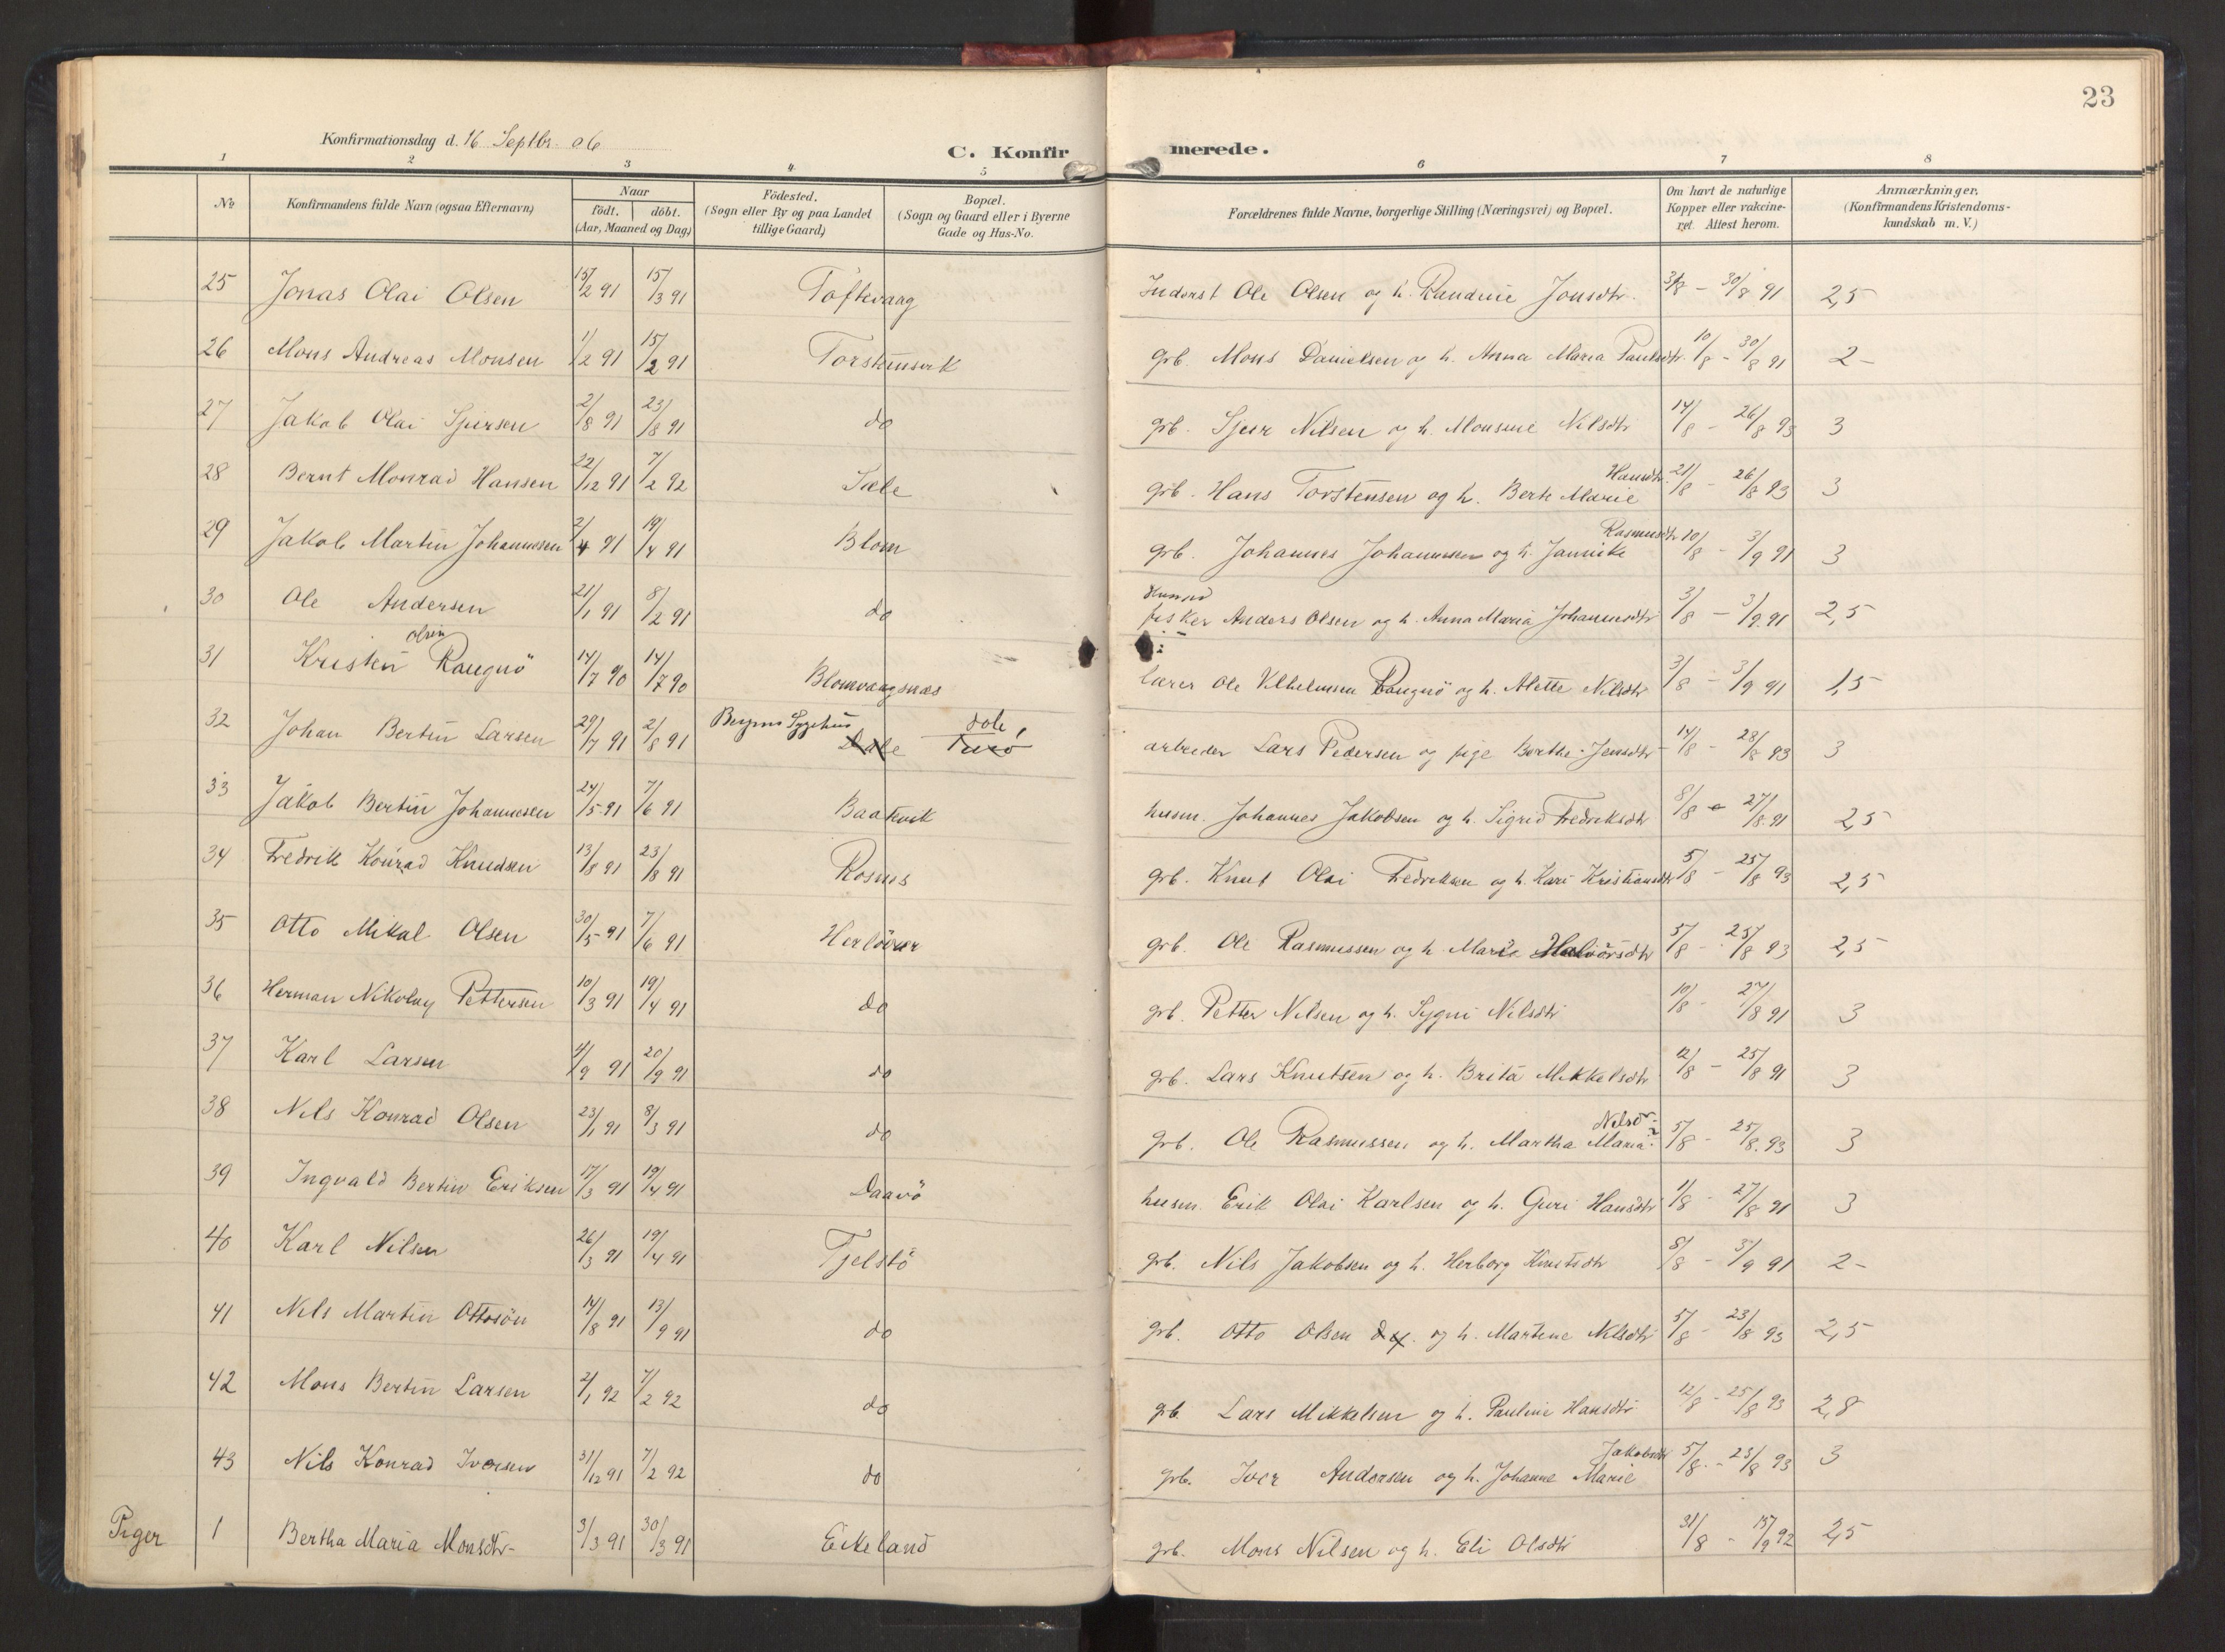 23
Konfirmationsdag d. 16 Septbr. 06
C. Konfirmerede.
1 2 3 4 5 6 7 8
No
Konfirmandens fulde Navn (ogsaa Efternavn)
Naar
födt. döbt.
(Aar, Maaned og Dag)
Födested.
(Sogn eller By og paa Landet
tillige Gaard)
Bopæl.
(Sogn og Gaard eller i Byerne
Gade og Hus-No.
Forældrenes fulde Navne, borgerlige Stilling (Næringsvei) og Bopæl.
Om havt de naturlige
Kopper eller vakcine-
ret. Attest herom.
Anmærkninger.
(Konfirmandens Kristendoms-
kundskab m. V.)
25 Jonas Olai Olsen 15/2 91 15/3 91 Toftevaag Inderst Ole Olsen og h. Randine Jonsdtr. 31/8 - 30/8 91 2,5
26 Mons Andreas Monsen 1/2 91 15/2 91 Torsteinsvik grb. Mons Danielsen og h. Anna Maria Paulsdtr. 10/8 - 30/8 91 2-
27 Jakob Olai Sjursen 2/8 91 23/8 91 do grb. Sjur Nilsen og h. Monsine Nilsdtr 14/8 - 26/8 93 3
28 Bernt Monrad Hansen 22/12 91 7/2 92 Sæle grb. Hans Torstensen og h. Berte Marie Hansdtr. 21/8 - 26/8 93 3
29 Jakob Martin Johannesen 2/4 91 19/4 91 Blom grb. Johannes Johannesen og h. Jannike Rasmusdtr 10/8 - 3/9 91 3
30 Ole Andersen 21/1 91 8/2 91 do fisker Anders Olsen og h. Anna Maria Johannesdtr 3/8 - 3/9 91 2,5
31 Kristen Olsen Rangnö 14/7 90 14/7 90 Blomvaagsnæs lærer Ole Vilhelmsen Rangnö og h. Alette Nilsdtr 3/8 - 3/9 91 1,5
32 Johan Bertin Larsen 29/7 91 2/8 91 Bergens Sygehus Dale dole, Turö arbeider Lars Pedersen og pige Berthe Jensdtr 14/8 - 28/8 93 3
33 Jakob Bertin Johannesen 24/5 91 7/6 91 Baatevik husm. Johannes Jakobsen og h. Sigrid Fredriksdtr 8/8 - 27/8 91 2,5
34 Fredrik Konrad Knudsen 13/8 91 23/8 91 Rosnes grb. Knut Olai Fredriksen og h. Kari Kristiansdtr 5/8 - 25/8 93 2,5
35 Otto Mikal Olsen 30/5 91 7/6 91 Herlövær grb. Ole Rasmussen og h. Marie Halvorsdtr 5/8 - 25/8 93 2,5
36 Herman Nikolay Pettersen 10/3 91 19/4 91 do grb. Petter Nilsen og h. Sygni Nilsdtr 10/8 - 27/8 91 3
37 Karl Larsen 4/9 91 20/9 91 do grb. Lars Knutsen og h. Brita Mikkelsdtr 12/8 - 25/8 91 3
38 Nils Konrad Olsen 23/1 91 8/3 91 do grb. Ole Rasmussen og h. Martha Maria Nilsdr 5/8 - 25/8 93 3
39 Ingvald Bertin Eriksen 17/3 91 19/4 91 Daavö husm. Erik Olai Karlsen og h. Guri Hansdtr 1/8 - 27/8 91 3
40 Karl Nilsen 26/3 91 19/4 91 Tjelstö grb. Nils Jakobsen og h. Herborg Knutsdtr 8/8 - 3/9 91 2-
41 Nils Martin Ottosön 14/8 91 13/9 91 do grb. Otto Olsen og h. Martine Nilsdtr 5/8 - 23/8 93 2,5
42 Mons Bertin Larsen 2/1 92 7/2 92 do grb. Lars Mikkelsen og h. Pauline Hansdtr 12/8 - 25/8 93 2,8
43 Nils Konrad Iversen 31/12 91 7/2 92 do grb. Iver Andersen og h. Johanne Marie Jakobsdtr 5/8 - 23/8 93 3
Piger 1 Bertha Maria Monsdtr- 3/3 91 30/3 91 Eikeland grb. Mons Nilsen og h. Eli Olsdtr 31/8 - 15/9 92 2,5